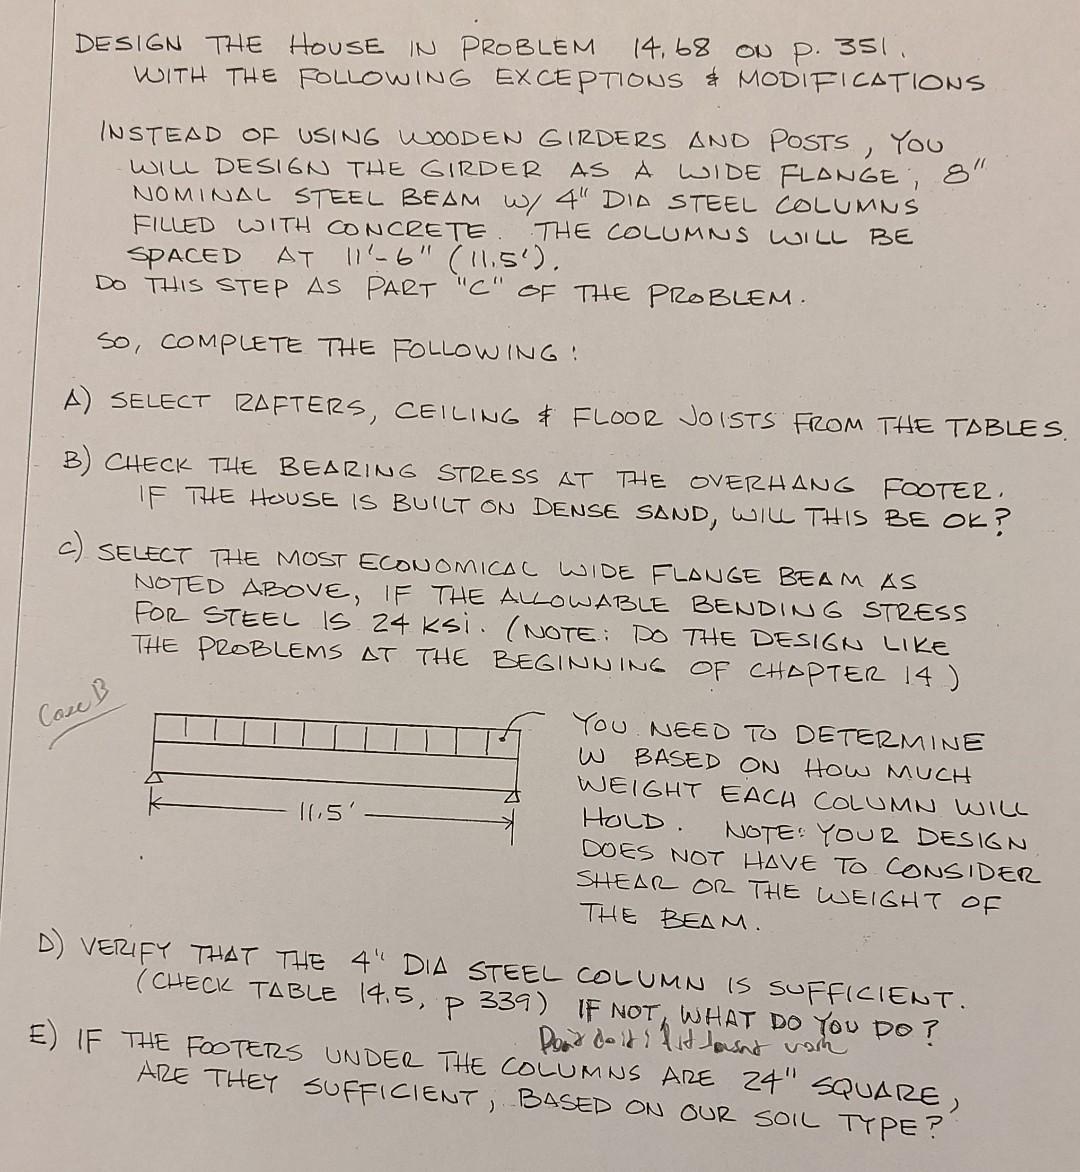 DESIGN THE HOUSE IN PROBLEM 14.68 ON p. 351.
WITH THE FOLLOWING EXCEPTIONS & MODIFICATIONS
INSTEAD OF USING WOODEN GIRDERS AND POSTS, YOU
WILL DESIGN THE GIRDER AS A WIDE FLANGE, 8"
NOMINAL STEEL BEAM W/ 4" DIA STEEL COLUMNS
FILLED WITH CONCRETE. THE COLUMNS WILL BE
SPACED AT 11'-6" (11.5').
DO THIS STEP AS PART "C" OF THE PROBLEM.
SO, COMPLETE THE FOLLOWING:
A) SELECT RAFTERS, CEILING & FLOOR JOISTS FROM THE TABLES.
B) CHECK THE BEARING STRESS AT THE OVERHANG FOOTER.
IF THE HOUSE IS BUILT ON DENSE SAND, WILL THIS BE OK?
C) SELECT THE MOST ECONOMICAL WIDE FLANGE BEAM AS
NOTED ABOVE, IF THE ALLOWABLE BENDING STRESS
FOR STEEL IS 24 KSi. (NOTE: DO THE DESIGN LIKE
THE PROBLEMS AT THE BEGINNING OF CHAPTER 14)
Case B
YOU NEED TO DETERMINE
W BASED ON HOW MUCH
WEIGHT EACH COLUMN WILL
HOLD. NOTE: YOUR DESIGN
DOES NOT HAVE TO CONSIDER
SHEAR OR THE WEIGHT OF
THE BEAM.
11.5'
D) VERIFY THAT THE 4" DIA STEEL COLUMN IS SUFFICIENT.
(CHECK TABLE 14.5, p 339) IF NOT, WHAT DO YOU DO?
Don't do it if it doesnt work
E) IF THE FOOTERS UNDER THE COLUMNS ARE 24" SQUARE,
ARE THEY SUFFICIENT, BASED ON OUR SOIL TYPE?